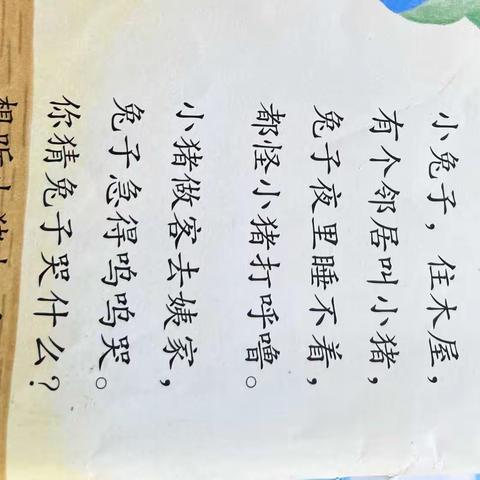 小兔子，住木屋，
有个邻居叫小猪，
兔子夜里睡不着，
都怪小猪打呼噜。
小猪做客去姨家，
兔子急得呜呜哭。
你猜兔子哭什么？
想听小猪